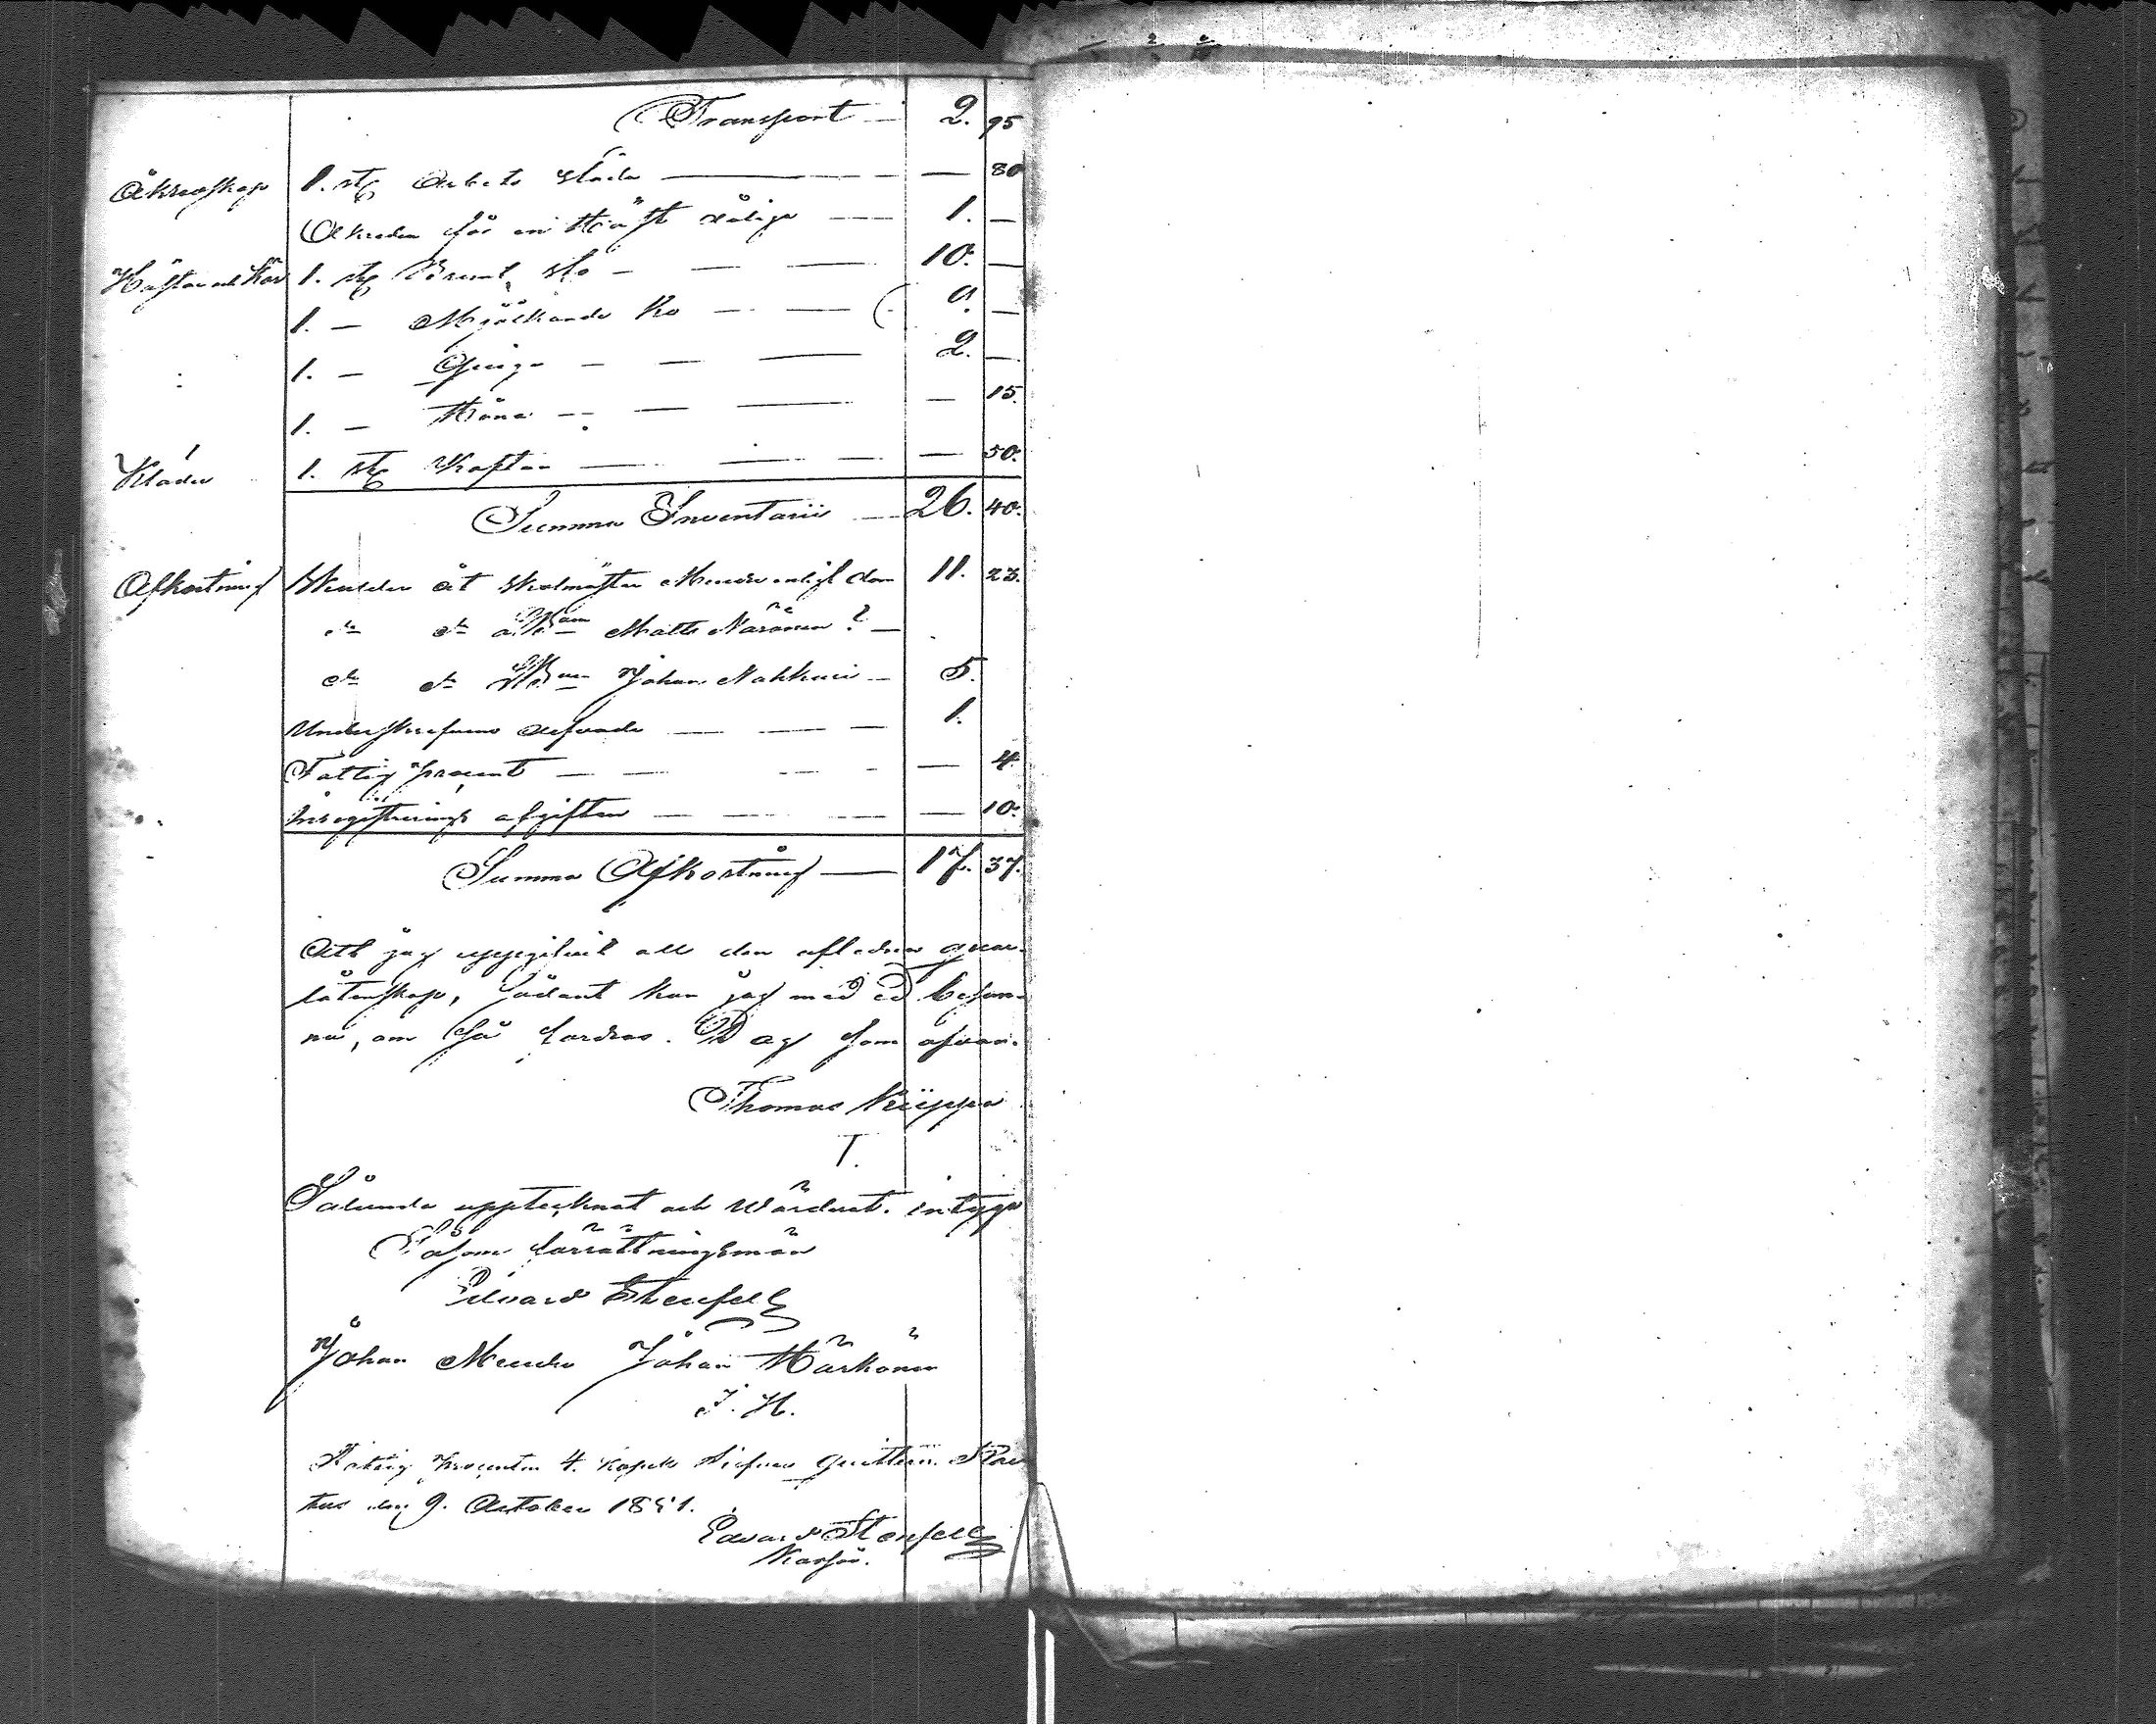 Transport — 2. 95
Åkredskap 1. st. Arbets släda — — 80
Åkredn för en Häst dålige — 1. —
Hästar och Kor 1. st. Brunt sto — 10. —
1. — Mjölkande Ko — 9. —
1. — Qviga — 2. —
1. — Höna — — 15.
Kläder 1. st. Kaftan — — 50.
Summa Inventarii — 26. 40.
Afkortning Skulden åt Skolmästar enligt dom 11. 23.
do do Matts Näränen? —
do do Johan Nakkuri — 5.
Underskrefvens arfvode — 1.
Fattig procent — — 4.
Inregistrerings afgiften — — 10.
Summa Afkortning — 17. 37.
Att jag uppgifvit all den aflednes qvar-
låtenskap, sådant kan jag med ed besan-
na, om så fordras. Dag som ofvan.
Thomas Kuppa
T.
Sålunda upptecknat och Wärderat. intyga
Såsom förrättningsmän
Edvard Stenfelt
Johan Johan Härkönen
J. H.
Fattig procenten 4. kopek Silfver qvitteras.
tus den 9. October 1851.
Edvard Stenfelt
Kassör.